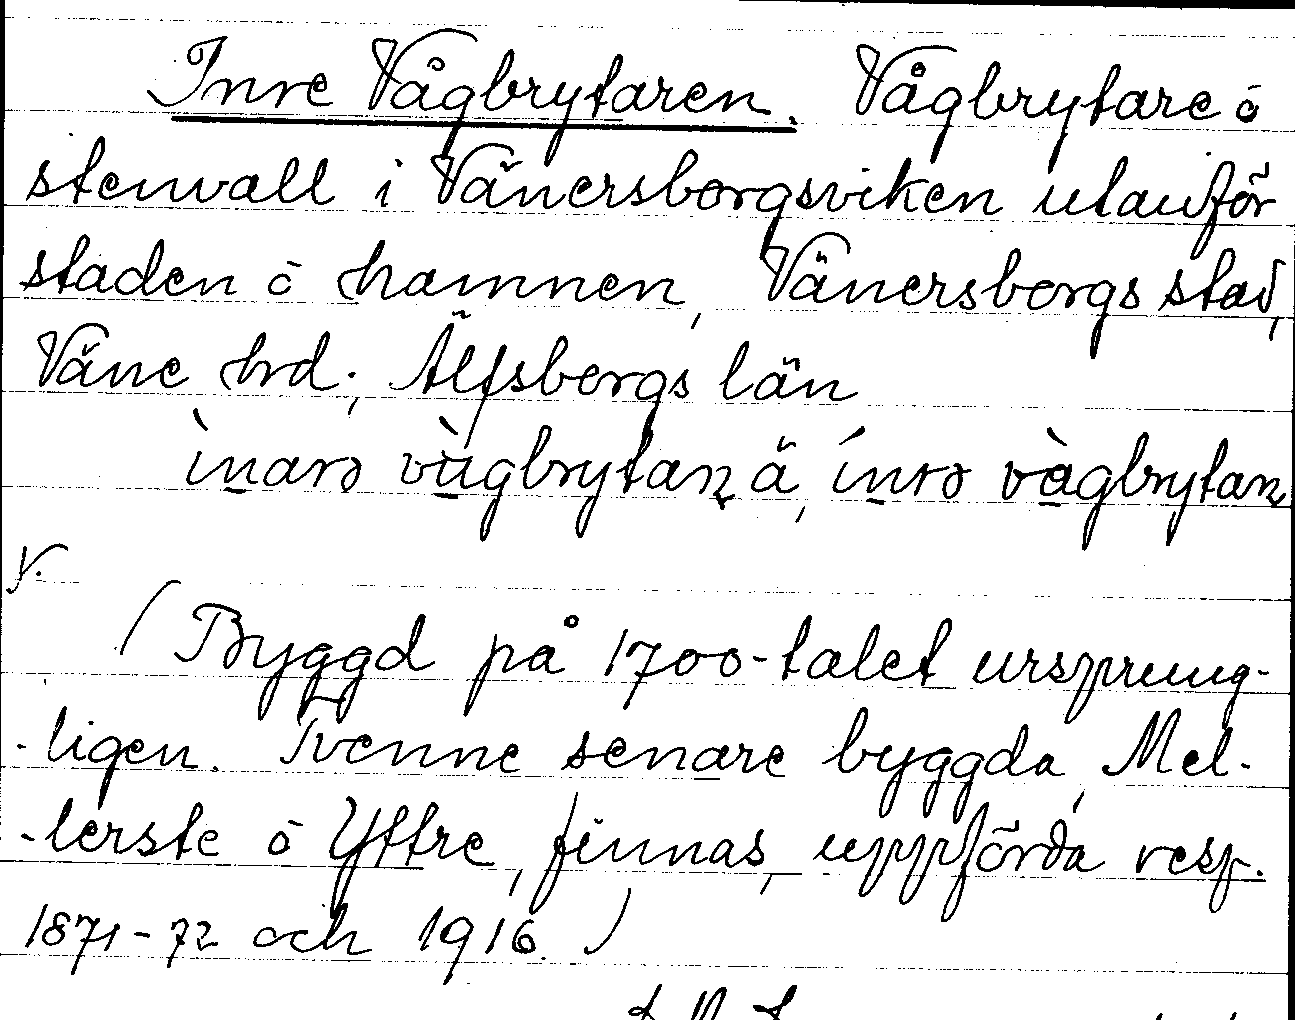 Inre Vågbrytaren. Vågbrytare ó
stenvall i Vänersborgsviken utanför
staden ó hamnen, Vänersborgs stad,
Väne hrd; Älfsborgs län
ìnarə vùgbrytaɳ ä, ínrə vàgbrytaɳ
V.
(Byggd på 1700-talet ursprung-
-ligen. Tvenne senare byggda, Mel-
-lerste ó Yttre, finnas, uppförda resp.
1871-72 och 1916.)